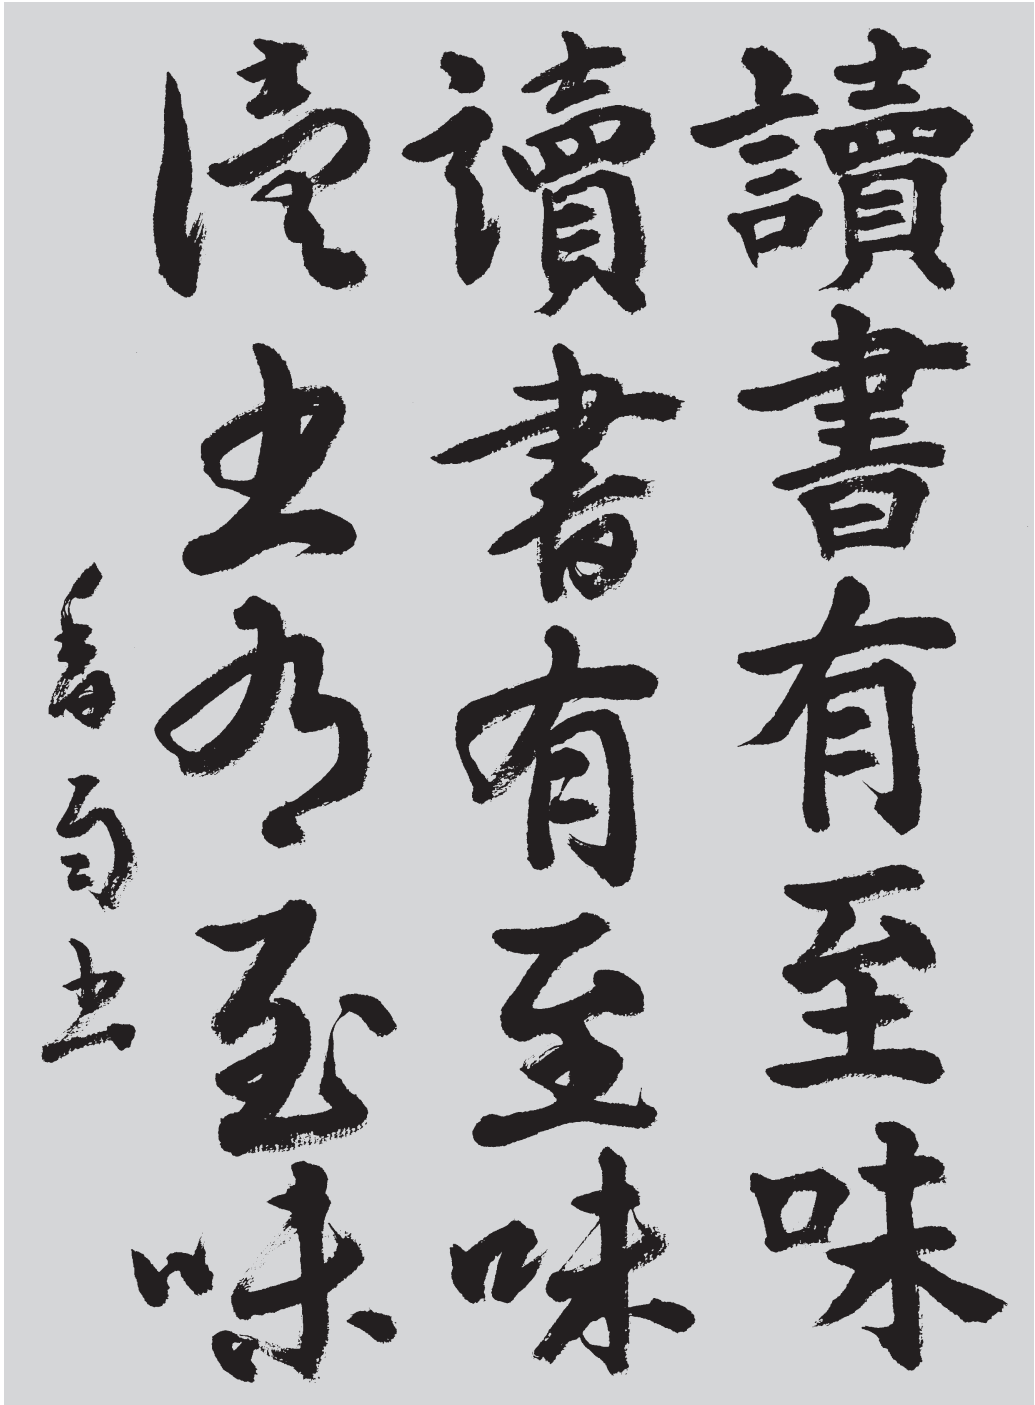 讀書有至味
讀書有至味
讀書有至味
香雨書